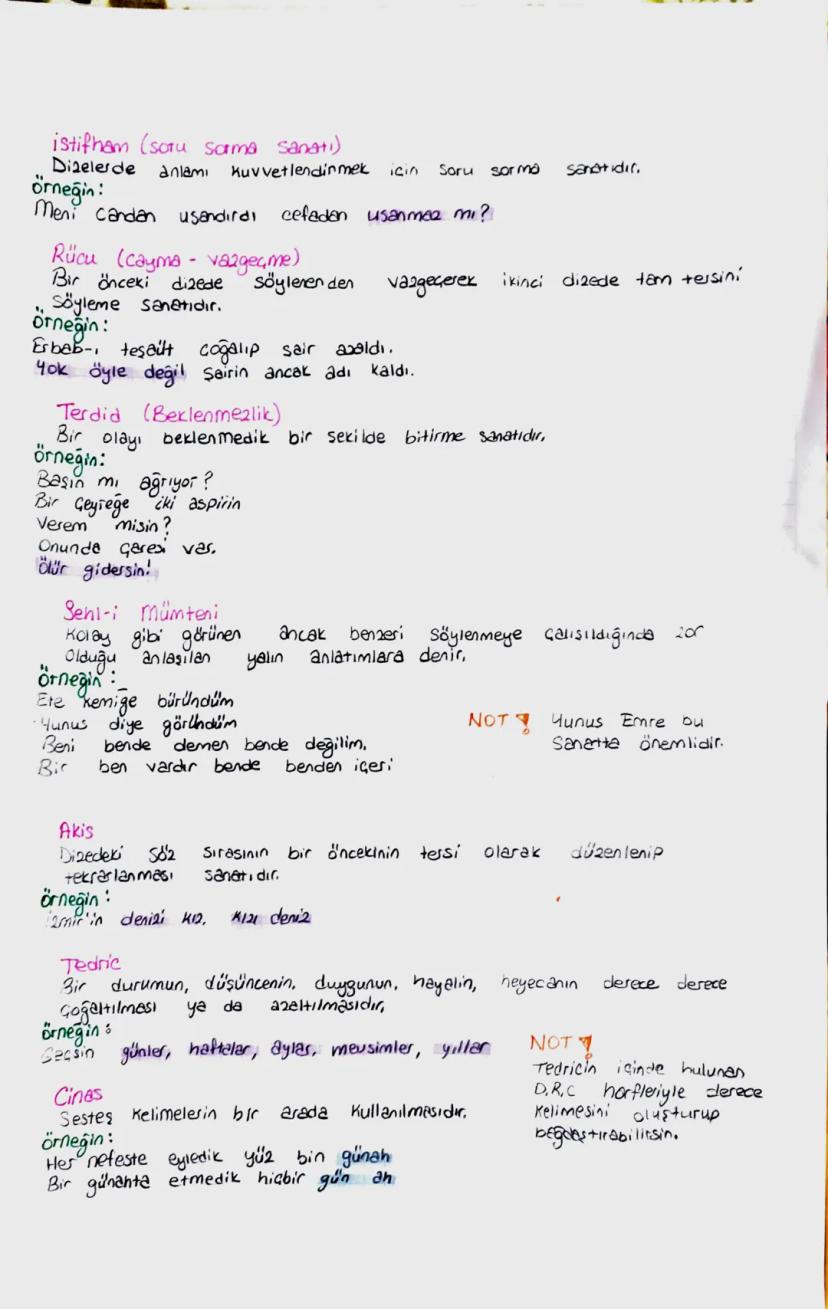 istifham (soru sorma sanatı)
Dizelerde anlamı kuvvetlendirmek için soru sorma sanatıdır.
örneğin:
Meni candan usandırdı cefadan usanmaz mı?
Rücu (cayma - vazgeçme)
Bir önceki dizede söylenenden vazgeçerek ikinci dizede tam tersini
Söyleme sanatıdır.
örneğin:
Erbab-ı teşaüt çoğalıp şair azaldı.
Yok öyle değil şairin ancak adı kaldı.
Terdid (Beklenmezlik)
Bir olayı beklenmedik bir şekilde bitirme sanatıdır.
örneğin:
Başın mı ağrıyor?
Bir Çeyreğe iki aspirin
Verem misin?
Onunda çaresi var.
Ölür gidersin!
Sehl-i Mümteni
Kolay gibi görünen ancak benzeri söylenmeye çalışıldığında zor
Olduğu anlaşılan yalın anlatımlara denir.
örneğin:
Ete kemiğe büründüm
Yunus diye göründüm
Beni bende demen bende değilim.
Bir ben vardır bende benden içeri
NOT! Yunus Emre bu
Sanatta önemlidir.
Akis
Dizedeki söz sırasının bir öncekinin tersi olarak düzenlenip
tekrarlanması sanatıdır.
örneğin:
izmir'in denizi kız, kızı deniz
Tedric
Bir durumun, düşüncenin, duygunun, hayalin, heyecanın derece derece
Çoğaltılması ya da azaltılmasıdır.
örneğin:
Geçsin günler, haftalar, aylar, mevsimler, yıllar
NOT!
Tedricin içinde bulunan
D,R,C harfleriyle derece
kelimesini oluşturup
bağdaştırabilirsin.
Cinas
Sesteş kelimelerin bir arada kullanılmasıdır.
örneğin:
Her nefeste eyledik yüz bin günah
Bir günahta etmedik hiçbir gün ah